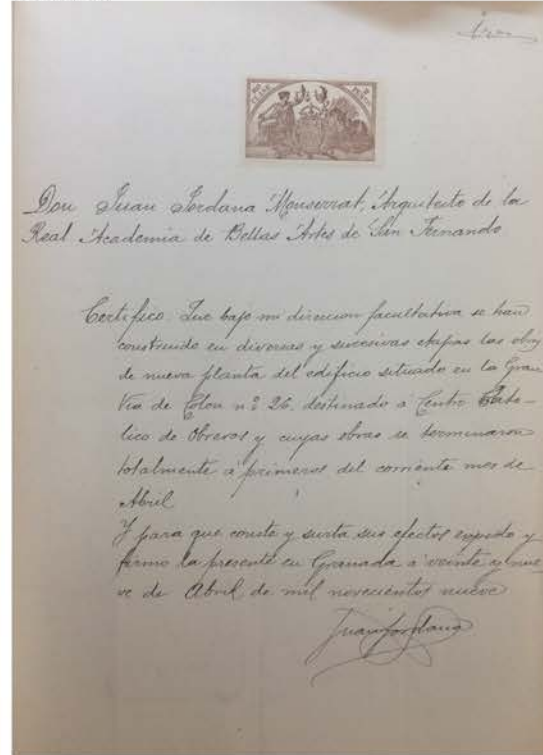 Don Juan Jordana Monserrat, Arquitecto de la
Real Academia de Bellas Artes de San Fernando
Certifico. Que bajo mi direccion facultativa se han
construido en diversas y sucesivas etapas las obras
de nueva planta del edificio situado en la Gran
Via de Colon nº 26. destinado á Centro Cato-
lico de Obreros y cuyas obras se terminaron
totalmente á primeros del corriente mes de
Abril
Y para que conste y surta sus efectos expido y
firmo la presente en Granada á veinte y nue-
ve de Abril de mil novecientos nueve
Juan Jordana